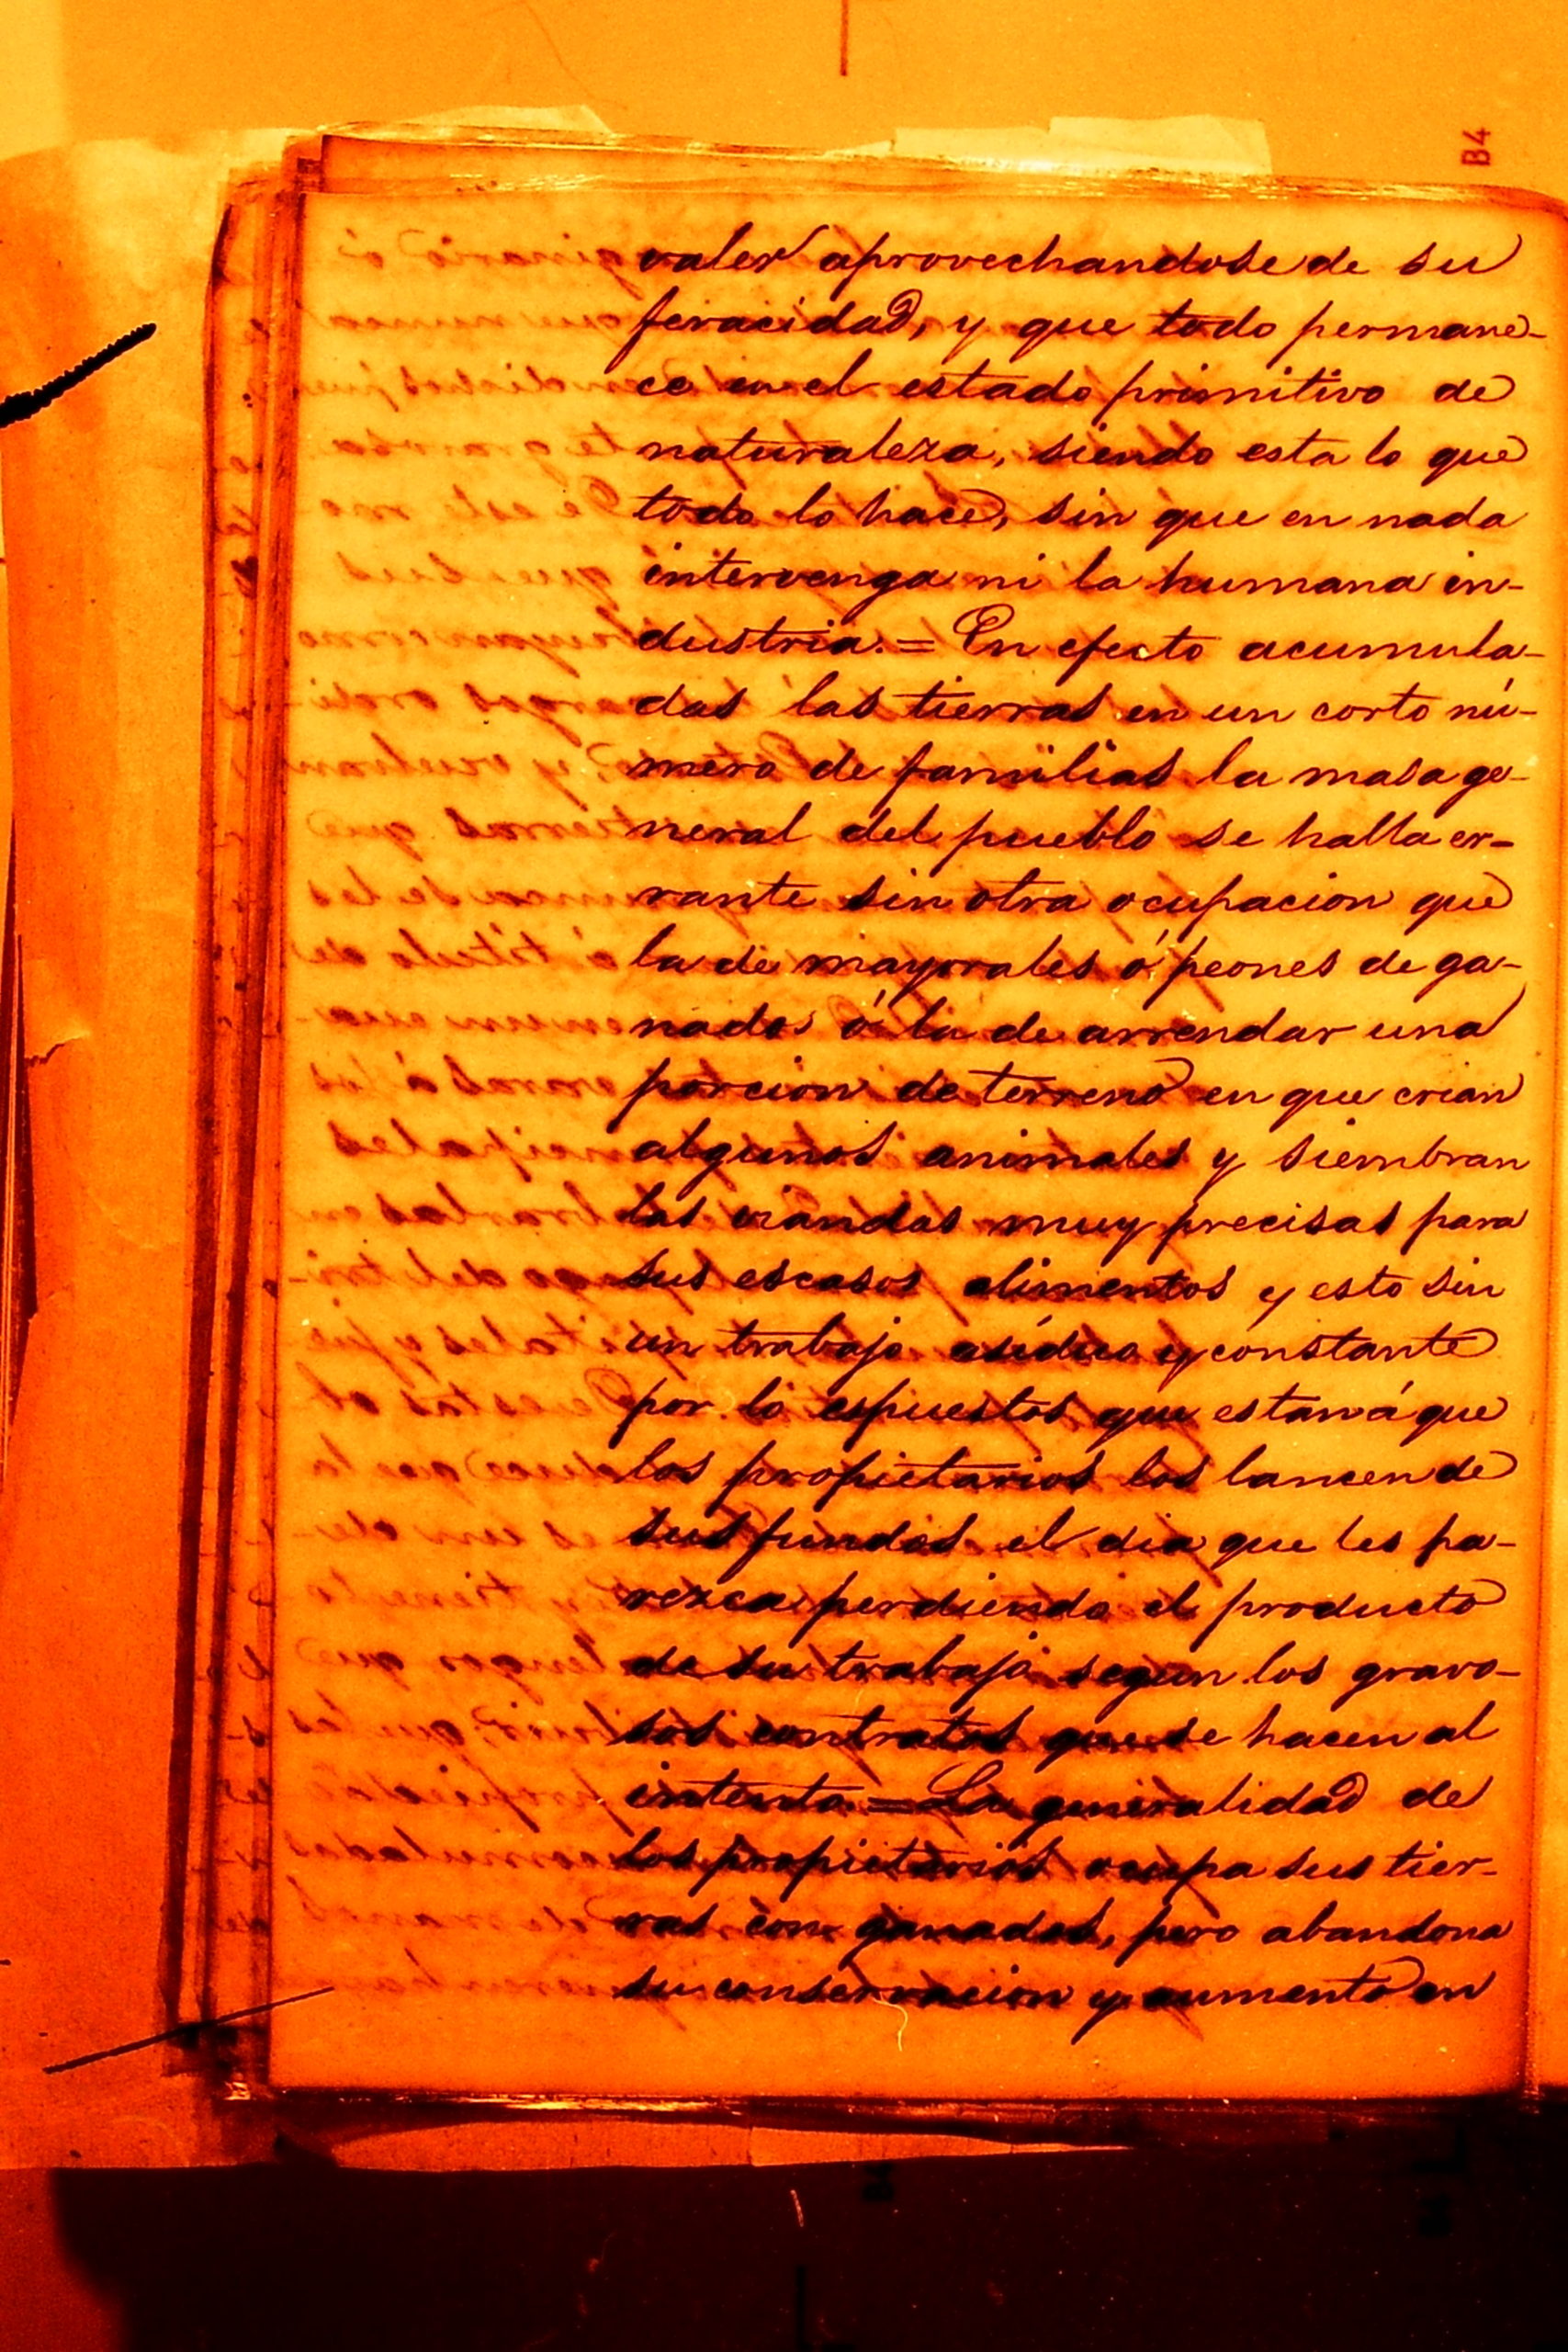 B4
valer aprovechandose de su
feracidad, y que todo permane-
ce en el estado primitivo de
naturaleza, siendo esta lo que
todo lo hace, sin que en nada
intervenga ni la humana in-
dustria.= En efecto acumula-
das las tierras en un corto nú-
mero de familias la masa ge-
neral del pueblo se halla er-
rante sin otra ocupacion que
la de mayorales ó peones de ga-
nados ó la de arrendar una
porcion de terreno en que crian
algunos animales y siembran
las viandas muy precisas para
sus escasos alimentos y esto sin
un trabajo asíduo y constante
por lo espuestos que estan á que
los propietarios los lancen de
sus fundos el dia que les pa-
rezca perdiendo el producto
de su trabajo segun los gravo-
sos contratos que se hacen al
intento = La generalidad de
los propietarios ocupa sus tier-
ras con ganados, pero abandona
su conservacion y aumento en